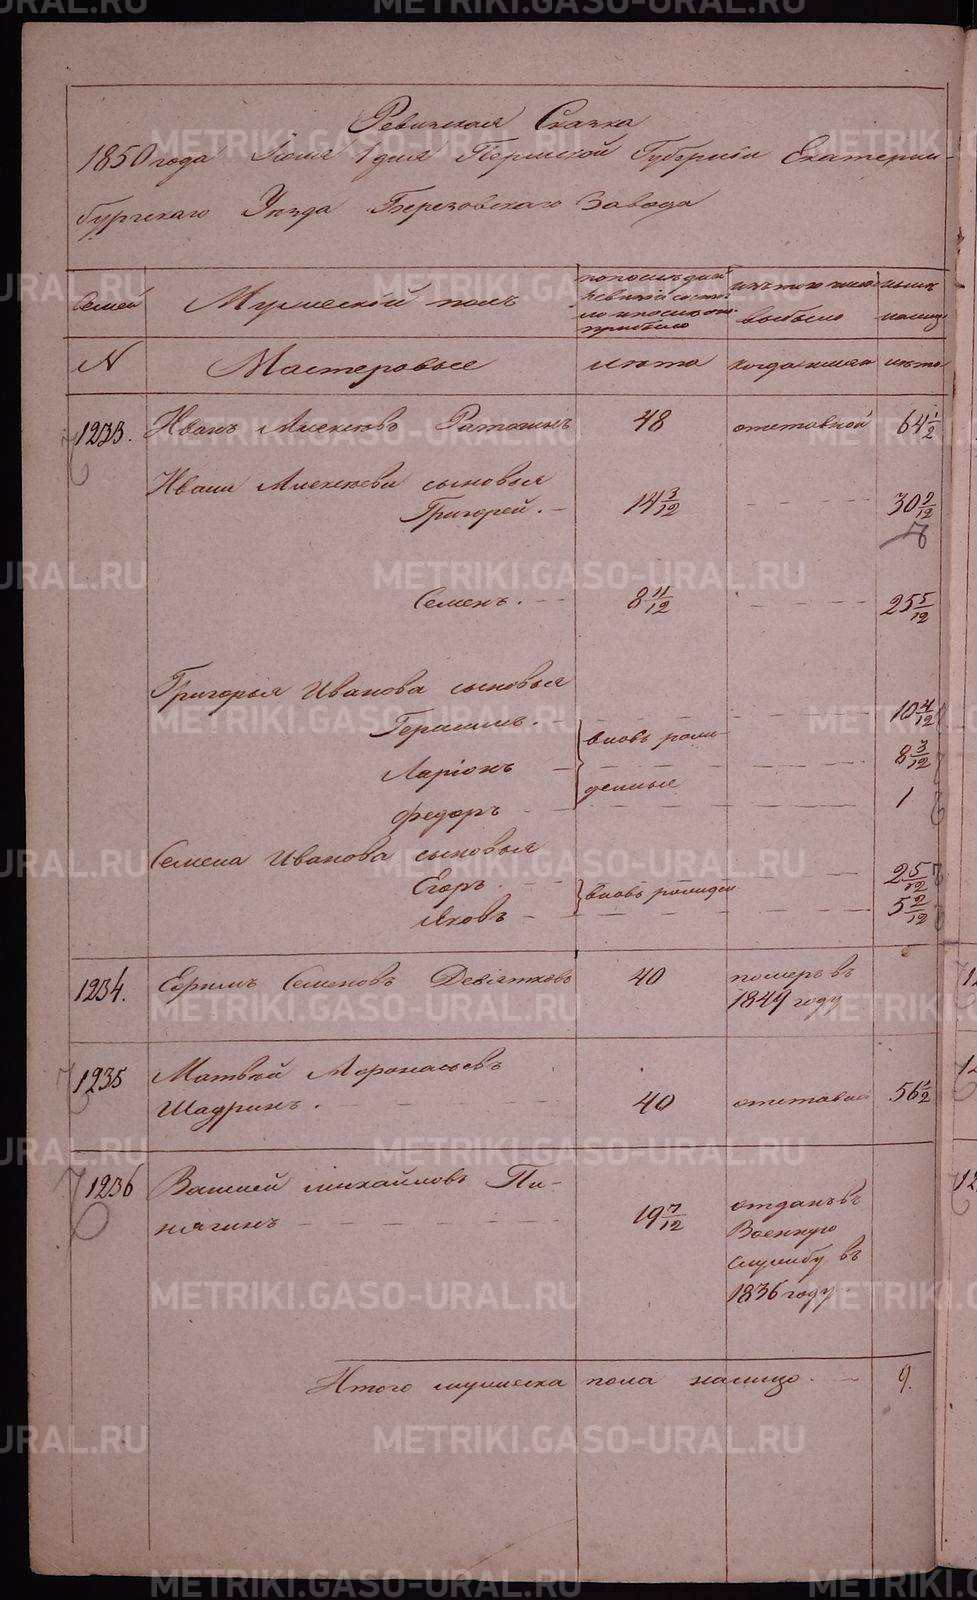 Ревизская Сказка
1850 года Июня 1 дня Пермской Губернии Екатерин-
бургскаго Уезда Березовскаго Завода
Семей
Мужеской полъ
по последней
ревизии состо-
яло и после оной
прибыло
изъ того числа
выбыло
ныне
налицо
N
Мастеровые
лета
когда именно
лета
1233.
Иванъ Алексеевъ
48
отставной
64 1/2
Ивана Алексеева сыновья
Григорей.
14 3/12
30 3/12
Семенъ.
8 11/12
25 5/12
Григорья Иванова сыновья
Герасимъ.
10 4/12
вновь рож-
Ларіонъ
8 3/12
денные
Федоръ
1
Семена Иванова сыновья
Егоръ.
2 5/12
вновь рожден
Яковъ
5 2/12
1234.
Ефимъ Семеновъ Девятковъ
40
померъ въ
1849 году
1235
Матвей Афонасьевъ
Шадринъ.
40
отставной
56 1/2
1236
Василей Михайловъ Пи-
нягинъ
19 7/12
отданъ въ
Военную
службу въ
1836 году
Итого мужеска пола налицо
9.
METRIKI.GASO-URAL.RU